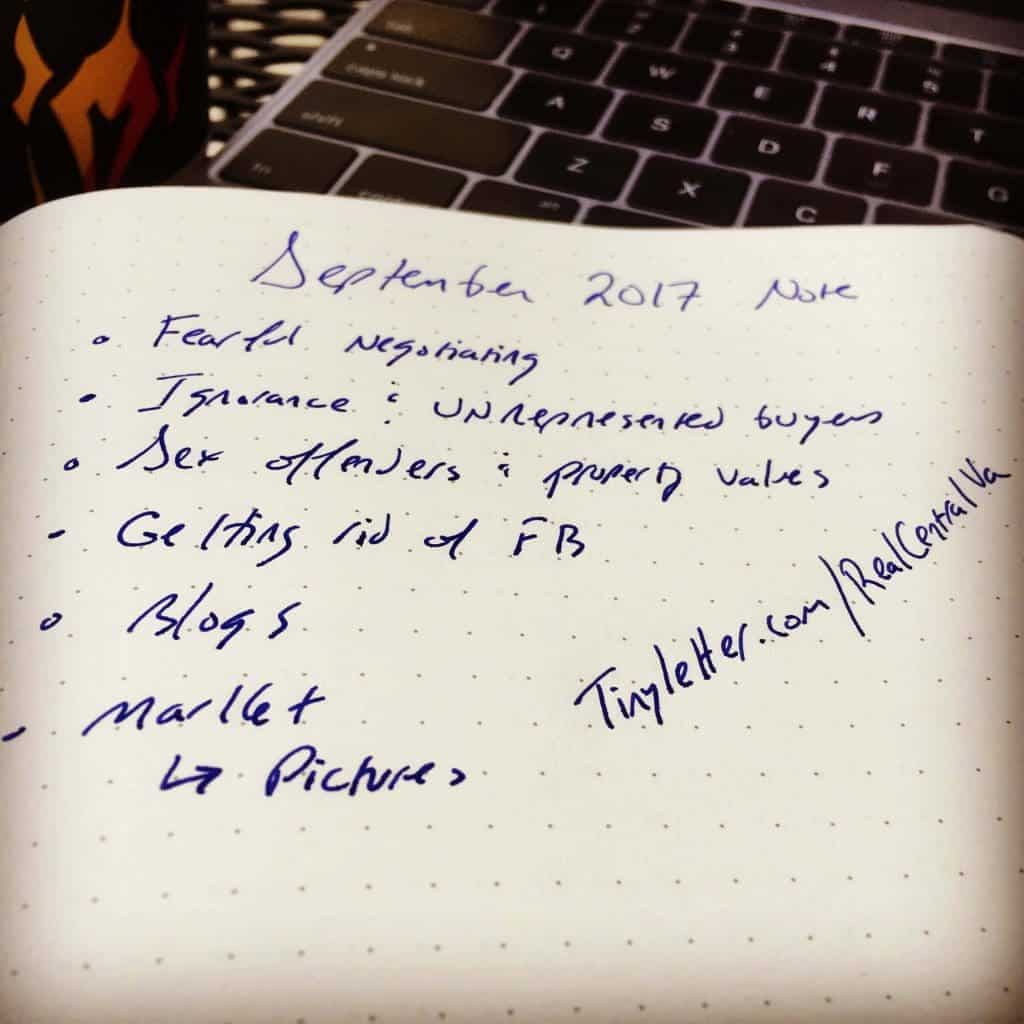 tab
1
2
3
4
5
Q
W
E
R
T
caps lock
A
S
D
F
G
shift
Z
X
C
fn
control
alt
September 2017 Note
Fearful negotiating
Ignorance & unrepresented buyers
Sex offenders & property values
Getting rid of FB
Blogs
Market
↳ Pictures
Tinyletter.com/RealCentralVa